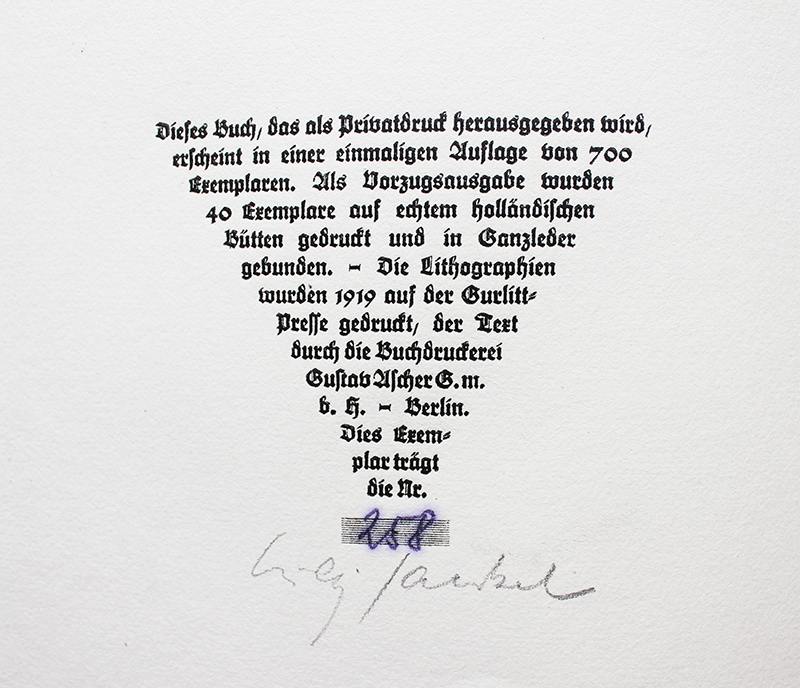 Dieses Buch, das als Privatdruck herausgegeben wird,
erscheint in einer einmaligen Auflage von 700
Exemplaren. Als Vorzugsausgabe wurden
40 Exemplare auf echtem holländischen
Bütten gedruckt und in Ganzleder
gebunden. – Die Lithographien
wurden 1919 auf der Gurlitt-
Presse gedruckt, der Text
durch die Buchdruckerei
Gustav Ascher G.m.
b. H. – Berlin.
Dies Exem-
plar trägt
die Nr.
258
Willy Jaeckel